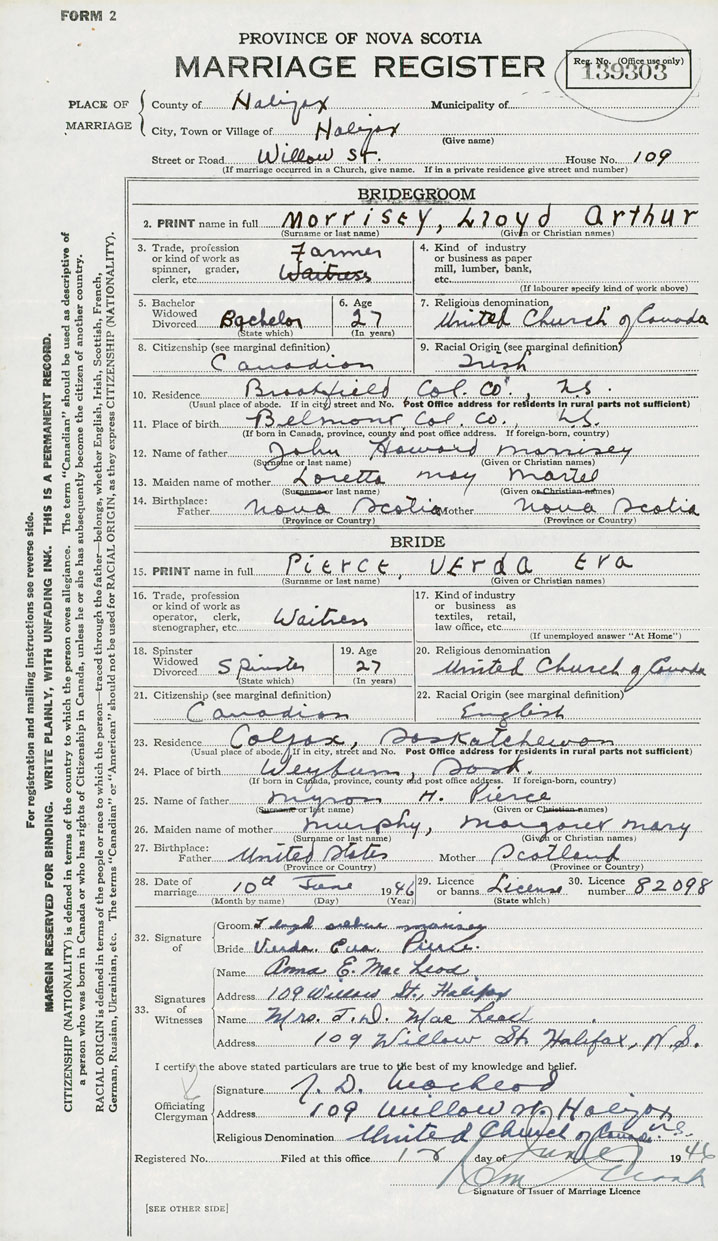 FORM 2
PROVINCE OF NOVA SCOTIA
MARRIAGE REGISTER
Reg. No. (Office use only)
139303
PLACE OF MARRIAGE
County of Halifax Municipality of
City, Town or Village of Halifax
(Give name)
Street or Road Willow St. House No. 109
(If marriage occurred in a Church, give name. If in a private residence give street and number)
BRIDEGROOM
2. PRINT name in full Morrisey, Lloyd Arthur
(Surname or last name) (Given or Christian names)
3. Trade, profession or kind of work as spinner, grader, clerk, etc. Farmer Waitress
4. Kind of industry or business as paper mill, lumber, bank, etc.
(If labourer specify kind of work above)
5. Bachelor Widowed Divorced Bachelor (State which)
6. Age 27 (In years)
7. Religious denomination United Church of Canada
8. Citizenship (see marginal definition) Canadian
9. Racial Origin (see marginal definition) Irish
10. Residence Brookfield Col. Co., N.S.
(Usual place of abode. If in city, street and No. Post Office address for residents in rural parts not sufficient)
11. Place of birth Belmont, Col. Co., N.S.
(If born in Canada, province, county and post office address. If foreign-born, country)
12. Name of father John Howard Morrisey
(Surname or last name) (Given or Christian names)
13. Maiden name of mother Loretta May Martel
(Surname or last name) (Given or Christian names)
14. Birthplace: Father Nova Scotia Mother Nova Scotia
(Province or Country) (Province or Country)
BRIDE
15. PRINT name in full Pierce, Verda Eva
(Surname or last name) (Given or Christian names)
16. Trade, profession or kind of work as operator, clerk, stenographer, etc. Waitress
17. Kind of industry or business as textiles, retail, law office, etc.
(If unemployed answer "At Home")
18. Spinster Widowed Divorced Spinster (State which)
19. Age 27 (In years)
20. Religious denomination United Church of Canada
21. Citizenship (see marginal definition) Canadian
22. Racial Origin (see marginal definition) English
23. Residence Colfax, Saskatchewan
(Usual place of abode. If in city, street and No. Post Office address for residents in rural parts not sufficient)
24. Place of birth Weyburn, Sask.
(If born in Canada, province, county and post office address. If foreign-born, country)
25. Name of father Myron H. Pierce
(Surname or last name) (Given or Christian names)
26. Maiden name of mother Murphy, Margaret Mary
(Surname or last name) (Given or Christian names)
27. Birthplace: Father United States Mother Scotland
(Province or Country) (Province or Country)
28. Date of marriage 10th June 1946
(Month by name) (Day) (Year)
29. Licence or banns License (State which)
30. Licence number 82098
32. Signature of
Groom Lloyd Arthur Morrisey
Bride Verda Eva Pierce.
33. Signatures of Witnesses
Name Anna E. MacLeod
Address 109 Willow St., Halifax
Name Mrs. J. D. MacLeod
Address 109 Willow St. Halifax, N.S.
I certify the above stated particulars are true to the best of my knowledge and belief.
Officiating Clergyman
Signature J. D. MacLeod
Address 109 Willow St, Halifax N.S.
Religious Denomination United Church of Canada
Registered No. Filed at this office 12 day of June 1946
Signature of Issuer of Marriage Licence
[SEE OTHER SIDE]
For registration and mailing instructions see reverse side.
MARGIN RESERVED FOR BINDING. WRITE PLAINLY, WITH UNFADING INK. THIS IS A PERMANENT RECORD.
CITIZENSHIP (NATIONALITY) is defined in terms of the country to which the person owes allegiance. The term "Canadian" should be used as descriptive of
a person who was born in Canada or who has rights of Citizenship in Canada, unless he or she has subsequently become the citizen of another country.
RACIAL ORIGIN is defined in terms of the people or race to which the person—traced through the father—belongs, whether English, Irish, Scottish, French,
German, Russian, Ukrainian, etc. The terms "Canadian" or "American" should not be used for RACIAL ORIGIN, as they express CITIZENSHIP (NATIONALITY).